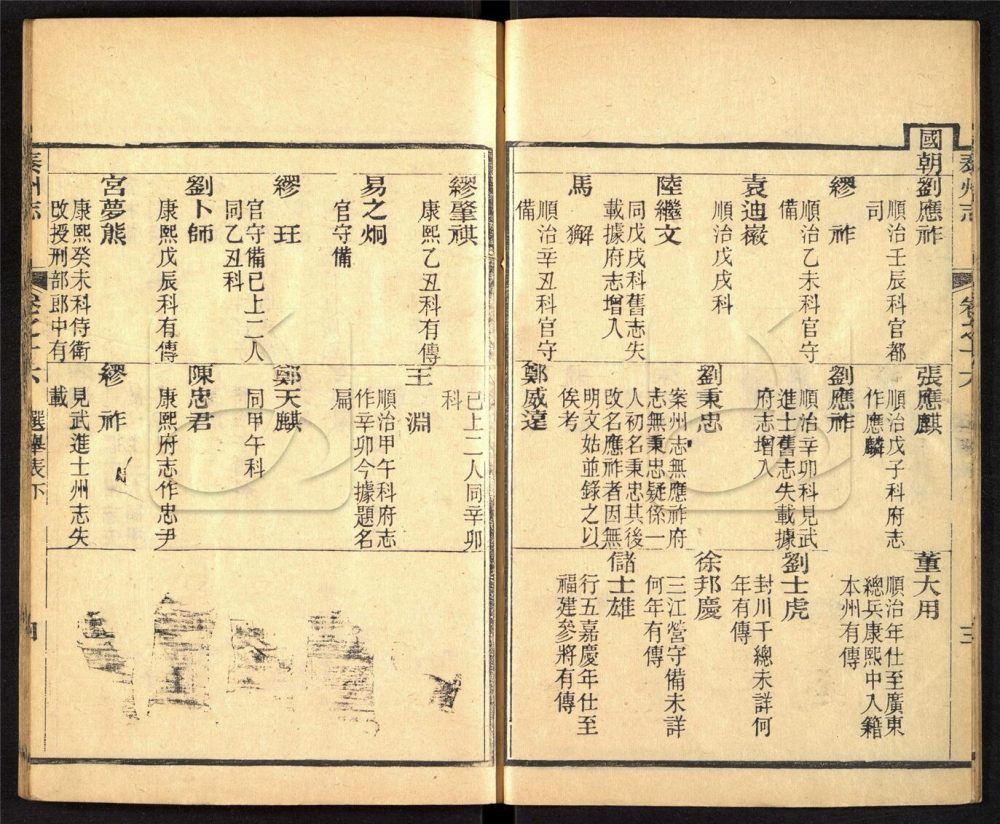 國朝
劉應祚
順治壬辰科官都
司
繆祚
順治乙未科官守
備
袁迪嶽
順治戊戌科
陸繼文
同戊戌科舊志失
載據府志增入
馬獬
順治辛丑科官守
備
張應麒
順治戊子科府志
作應麟
劉應祚
順治辛卯科見武
進士舊志失載據
府志增入
劉秉忠
案州志無應祚府
志無秉忠疑係一
人初名秉忠其後
改名應祚者因無
明文姑並錄之以
俟考
鄭威遠
董大用
順治年仕至廣東
總兵康熙中入籍
本州有傳
劉士虎
封川千總未詳何
年有傳
徐邦慶
三江營守備未詳
何年有傳
儲士雄
行五嘉慶年仕至
福建參將有傳
泰州志
卷之十六
三
繆肇祺
康熙乙丑科有傳
易之炯
官守備
繆玨
官守備已上二人
同乙丑科
劉卜師
康熙戊辰科有傳
宮夢熊
康熙癸未科侍衛
改授刑部郎中有
已上二人同辛卯
科
王淵
順治甲午科府志
作辛卯今據題名
扁
鄭天麒
同甲午科
陳忠君
康熙府志作忠尹
繆祚
見武進士州志失
載
泰州志
卷之十六
選舉表下
四